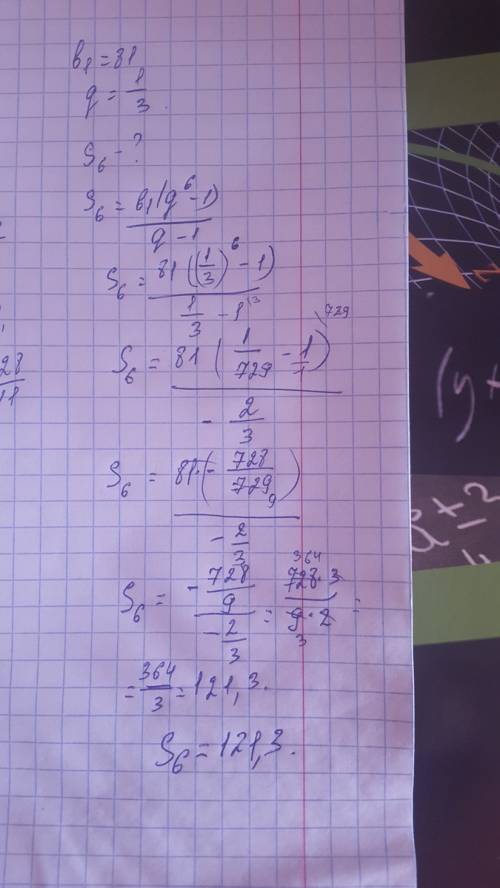 b₁ = 81
q = 1/3.
S₆ - ?
S₆ = b₁(q⁶ - 1) / q - 1
S₆ = 81((1/3)⁶ - 1) / 1/3 - 1\3
S₆ = 81(1/729 - 1/1\729) / - 2/3
S₆ = 81·(- 728/729 9) / - 2/3
S₆ = - 728/9 / - 2/3 = 364 728·3 / 9·2 3 =
= 364/3 = 121,3.
S₆ = 121,3.
28/11
(y+